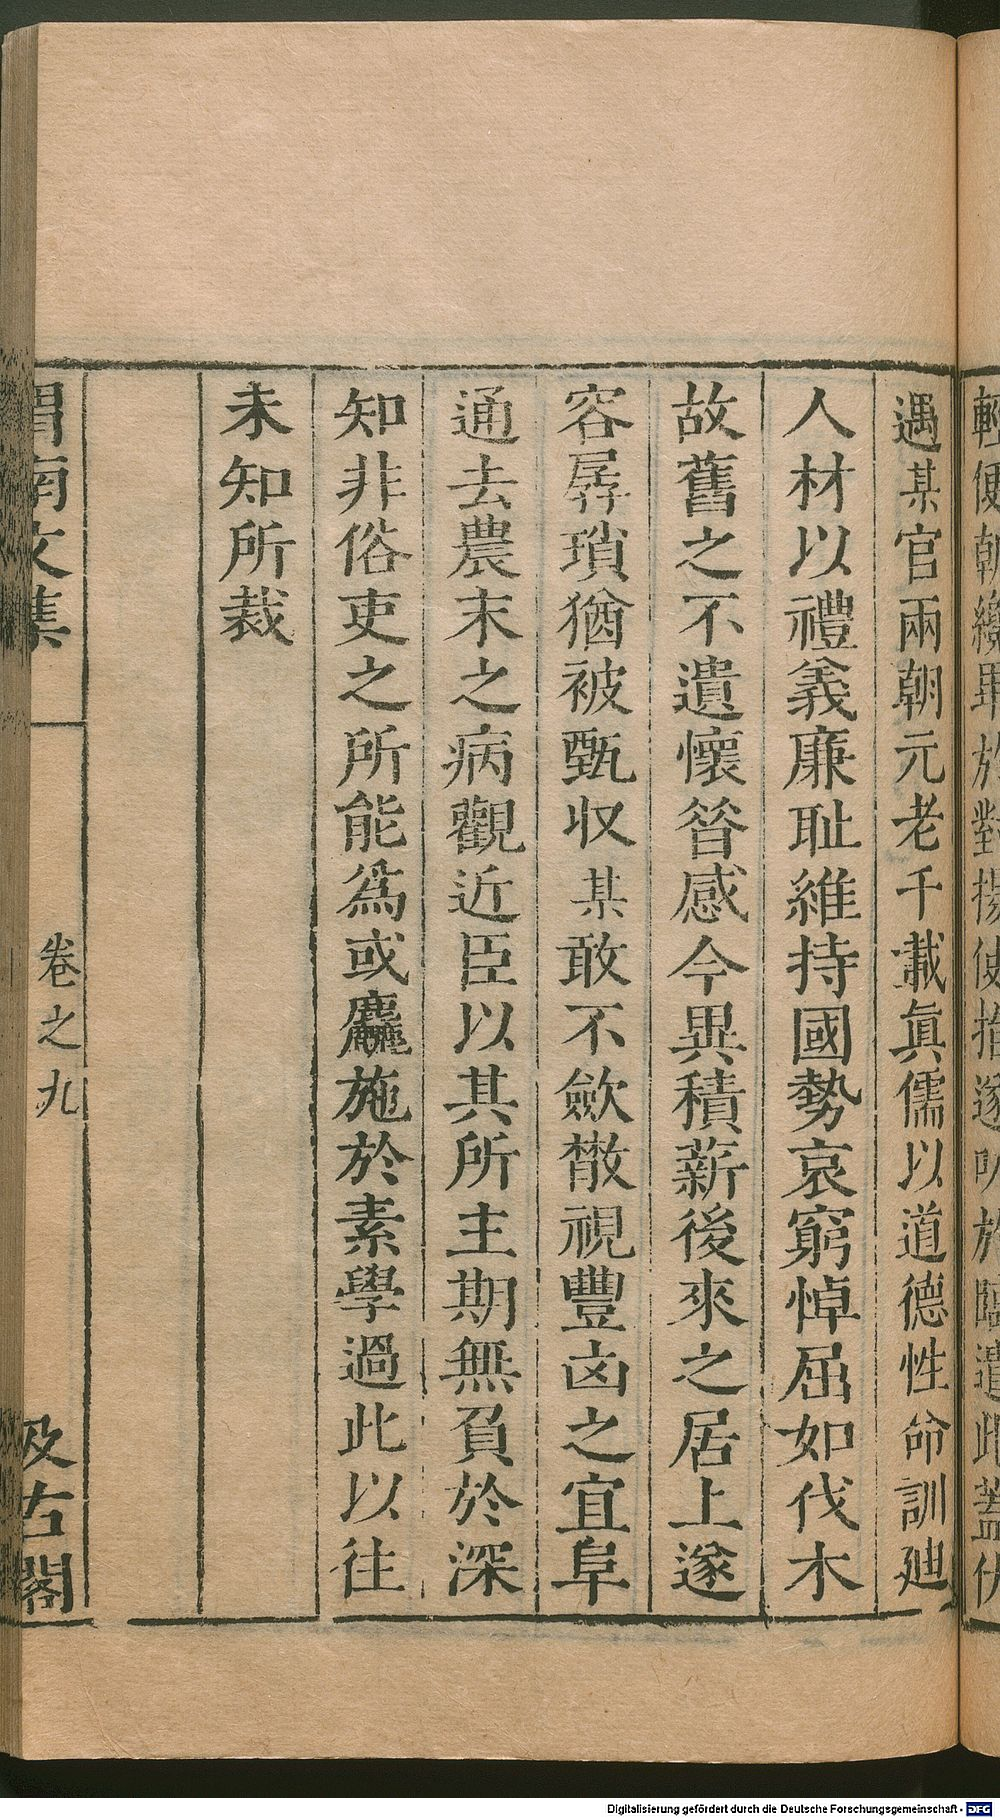 遇某官兩朝元老千載眞儒以道德性命訓廸
人材以禮義廉耻維持國勢哀窮悼屈如伐木
故舊之不遺懷昝感今異積薪後來之居上遂
容孱瑣猶被甄收某敢不歛散視豐凶之宜阜
通去農末之病觀近臣以其所主期無負於深
知非俗吏之所能爲或麤施於素學過此以往
未知所裁
渭南文集
卷之九
汲古閣
Digitalisierung gefördert durch die Deutsche Forschungsgemeinschaft - DFG